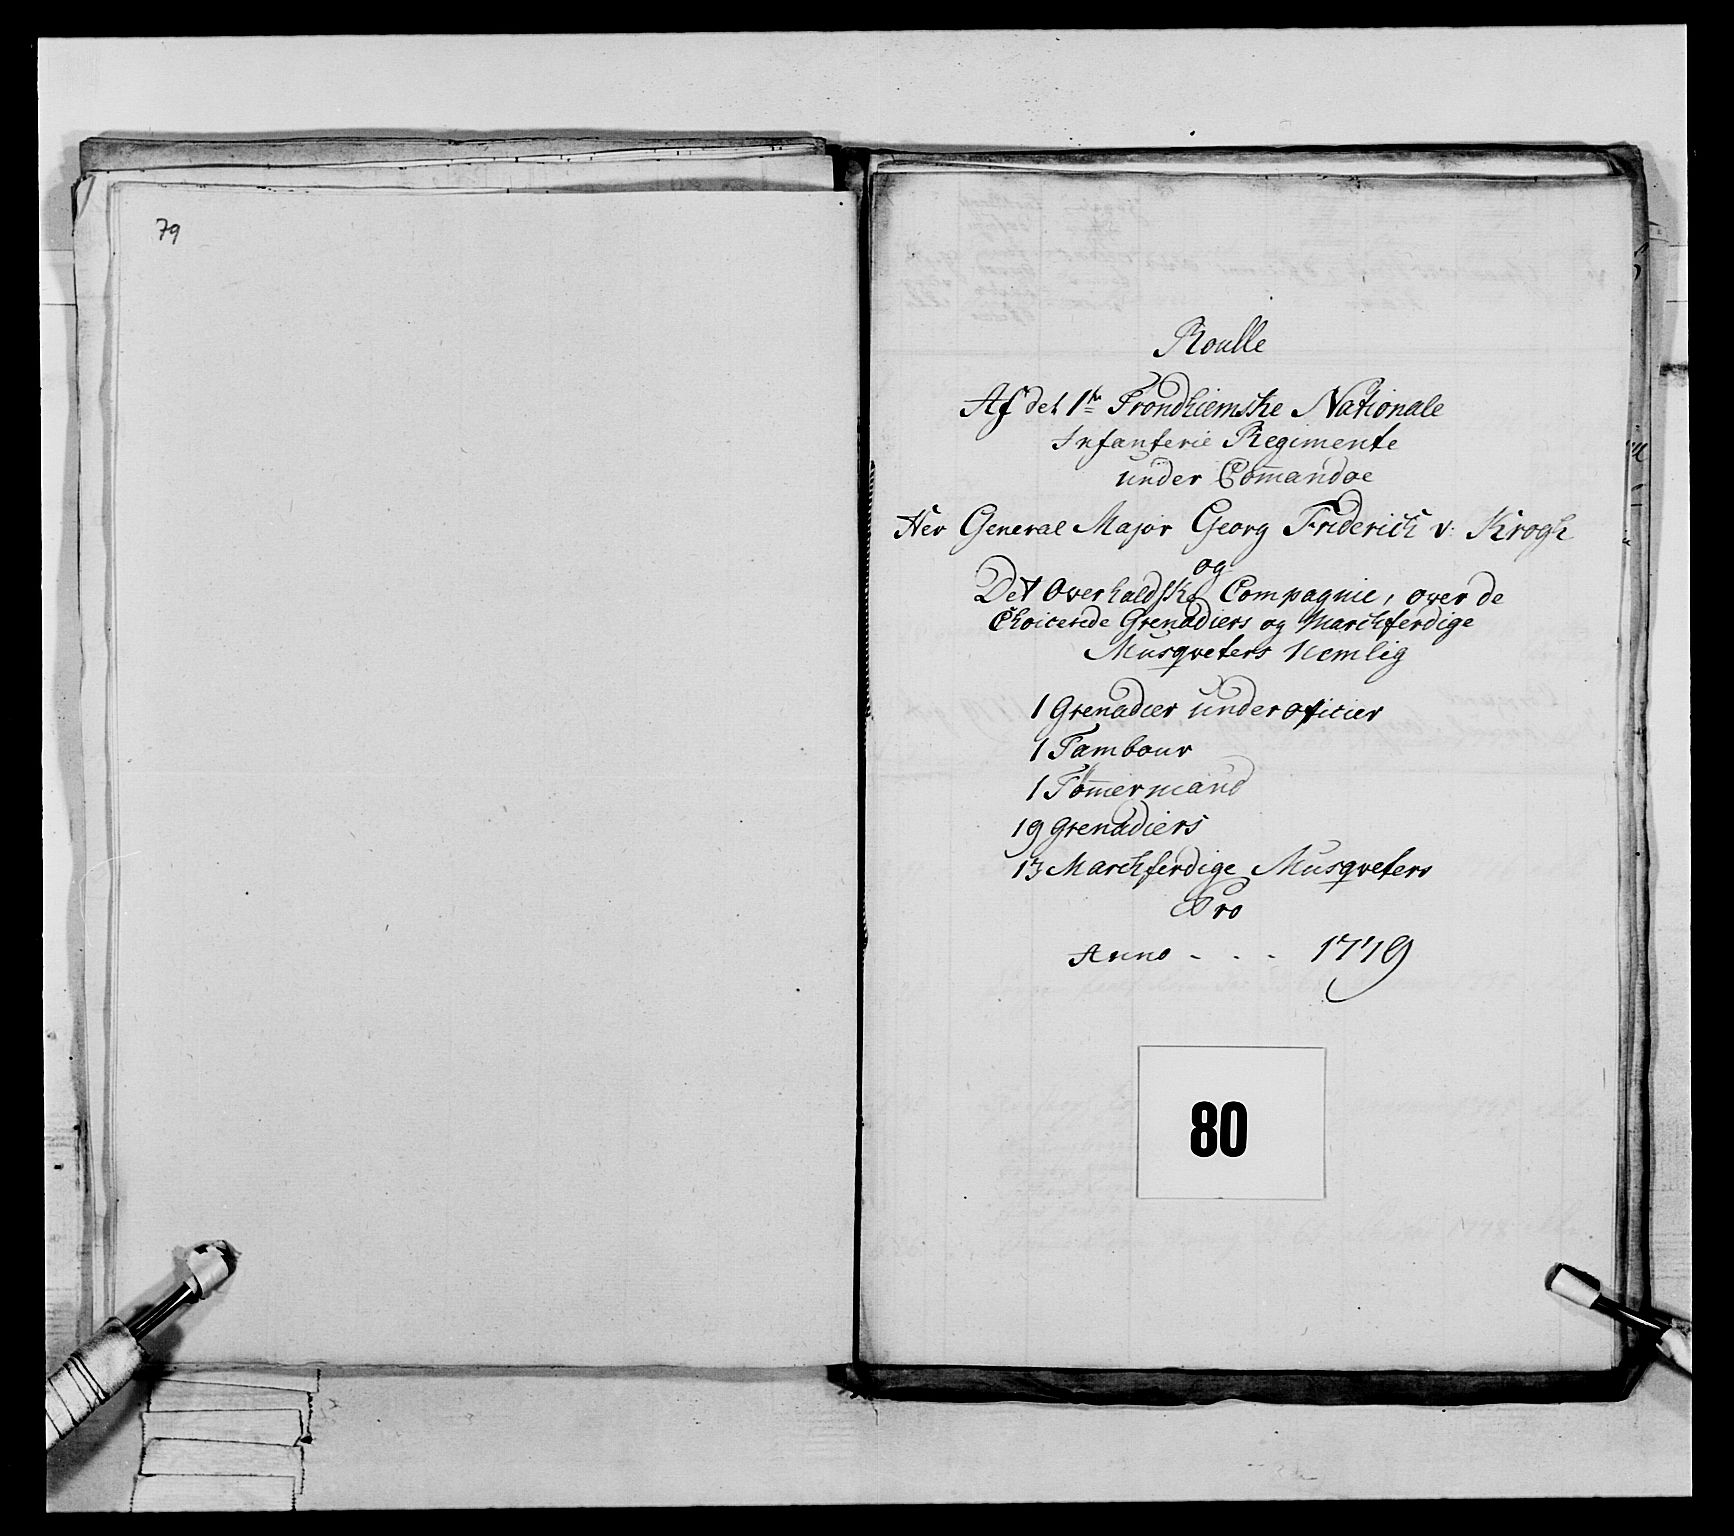 79
Roulle
Af det 1te Trondhiemske Nationale
Infanterie Regimente
under Com̄andoe
Her General Major Georg Friderich v: Krogh
og
Det Overhaldske Compagnie, over de
Choicerede Grenadiers og Marchferdige
Musqveters Nemlig
1 Grenadier underofficier
1 Tambour
1 Tøm̄ermand
19 Grenadiers
13 Marchferdige Musqveters
Pro
Anno - - - 1779
80